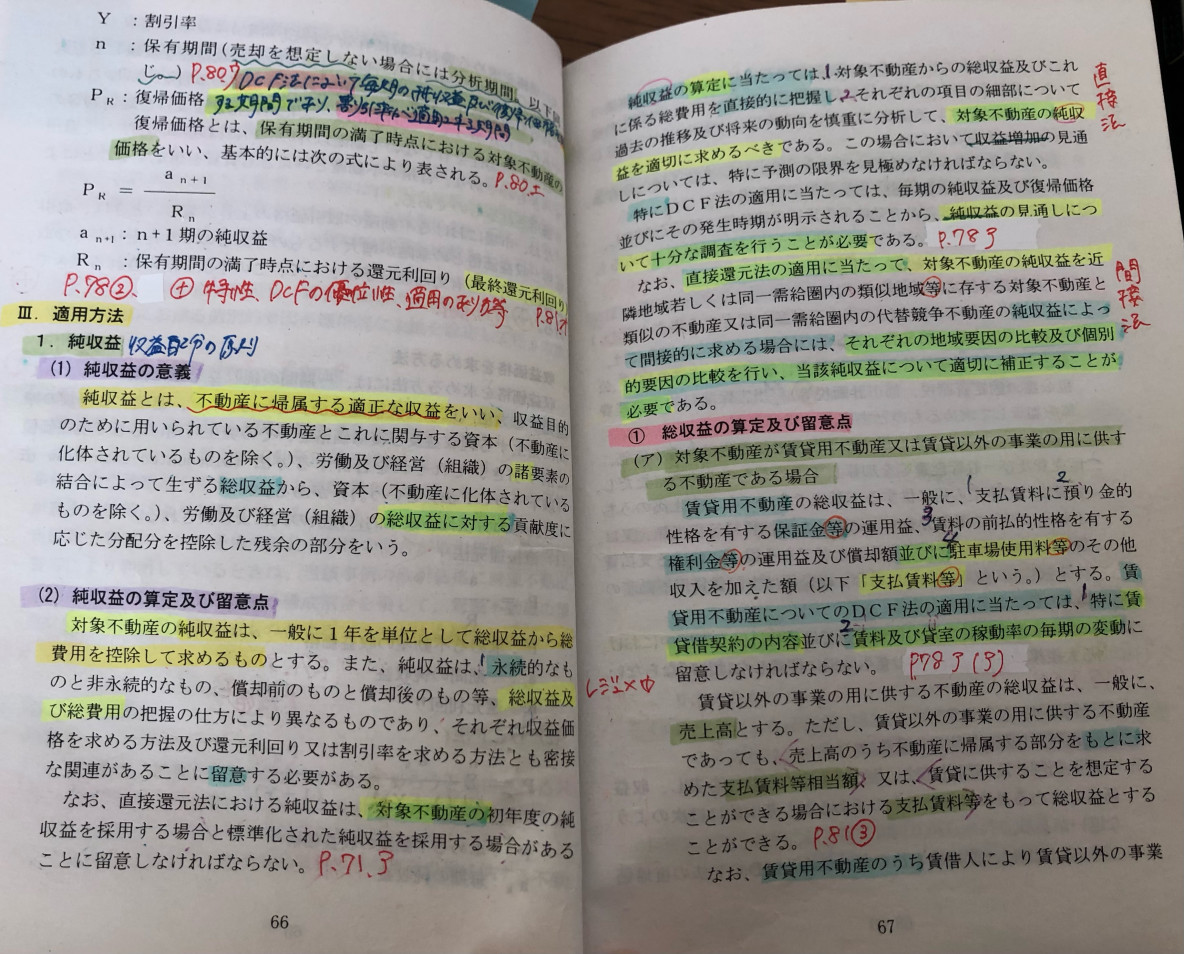 Y ：割引率
n ：保有期間（売却を想定しない場合には分析期間。以下同
じ。） P.80ｱ DCF法において毎期の純収益及び復帰
P R：復帰価格 する期間であり、割引率を適用する期間
復帰価格とは、保有期間の満了時点における対象不動産の
価格をいい、基本的には次の式により表される。P.80.エ
P R ＝ a n+1
R n
a n+1：n＋1期の純収益
R n ：保有期間の満了時点における還元利回り（最終還元利回り
P.78② ⊕ 特性、DCFの優位性、適用のあり方等 P.81
Ⅲ．適用方法
1．純収益 収益配分の原則
(1) 純収益の意義
純収益とは、不動産に帰属する適正な収益をいい、収益目的
のために用いられている不動産とこれに関与する資本（不動産に
化体されているものを除く。）、労働及び経営（組織）の諸要素の
結合によって生ずる総収益から、資本（不動産に化体されている
ものを除く。）、労働及び経営（組織）の総収益に対する貢献度に
応じた分配分を控除した残余の部分をいう。
(2) 純収益の算定及び留意点
対象不動産の純収益は、一般に１年を単位として総収益から総
費用を控除して求めるものとする。また、純収益は、1 永続的なも
のと非永続的なもの、償却前のものと償却後のもの等、総収益及
び総費用の把握の仕方により異なるものであり、それぞれ収益価
格を求める方法及び還元利回り又は割引率を求める方法とも密接
な関連があることに留意する必要がある。
なお、直接還元法における純収益は、対象不動産の初年度の純
収益を採用する場合と標準化された純収益を採用する場合がある
ことに留意しなければならない。P.71.ｱ
66
純収益の算定に当たっては、1 対象不動産からの総収益及びこれ
に係る総費用を直接的に把握し、2 それぞれの項目の細部について
過去の推移及び将来の動向を慎重に分析して、対象不動産の純収
益を適切に求めるべきである。この場合において収益増加の見通
しについては、特に予測の限界を見極めなければならない。
直接法
特にＤＣＦ法の適用に当たっては、毎期の純収益及び復帰価格
並びにその発生時期が明示されることから、純収益の見通しにつ
いて十分な調査を行うことが必要である。P.78ｱ
なお、直接還元法の適用に当たって、対象不動産の純収益を近
隣地域若しくは同一需給圏内の類似地域等に存する対象不動産と
類似の不動産又は同一需給圏内の代替競争不動産の純収益によっ
て間接的に求める場合には、それぞれの地域要因の比較及び個別
的要因の比較を行い、当該純収益について適切に補正することが
必要である。
間接法
① 総収益の算定及び留意点
（ア）対象不動産が賃貸用不動産又は賃貸以外の事業の用に供す
る不動産である場合
賃貸用不動産の総収益は、一般に、1 支払賃料に2 預り金的
性格を有する保証金等の運用益、3 賃料の前払的性格を有する
権利金等の運用益及び償却額並びに4 駐車場使用料等のその他
収入を加えた額（以下「支払賃料等」という。）とする。賃
貸用不動産についてのＤＣＦ法の適用に当たっては、特に1 賃
貸借契約の内容並びに2 賃料及び貸室の稼動率の毎期の変動に
留意しなければならない。P78ｱ(ｱ)
レジュメ中
賃貸以外の事業の用に供する不動産の総収益は、一般に、
売上高とする。ただし、賃貸以外の事業の用に供する不動産
であっても、売上高のうち不動産に帰属する部分をもとに求
めた支払賃料等相当額、又は、賃貸に供することを想定する
ことができる場合における支払賃料等をもって総収益とする
ことができる。P.81③
なお、賃貸用不動産のうち賃借人により賃貸以外の事業
67